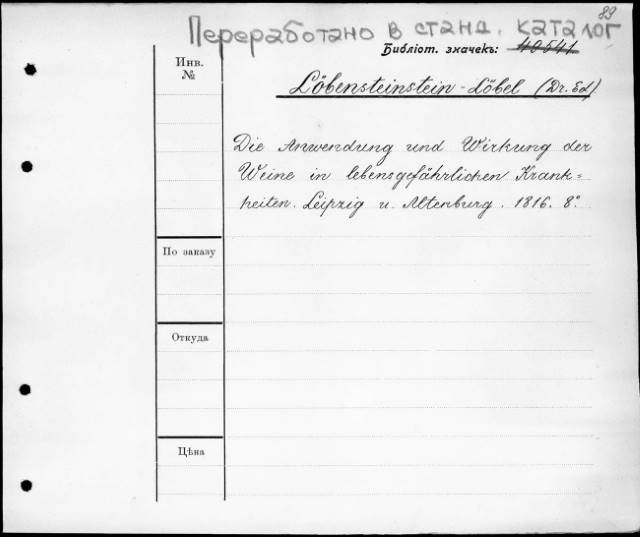 89
Переработано в станд. каталог
Библіот. значекъ: 40541.
Инв.
№
Löbensteinstein-Löbel (Dr. Ed)
Die Anwendung und Wirkung der
Weine in lebensgefährlichen Krank=
heiten. Leipzig u. Altenburg. 1816. 8°.
По заказу
Откуда
Цѣна